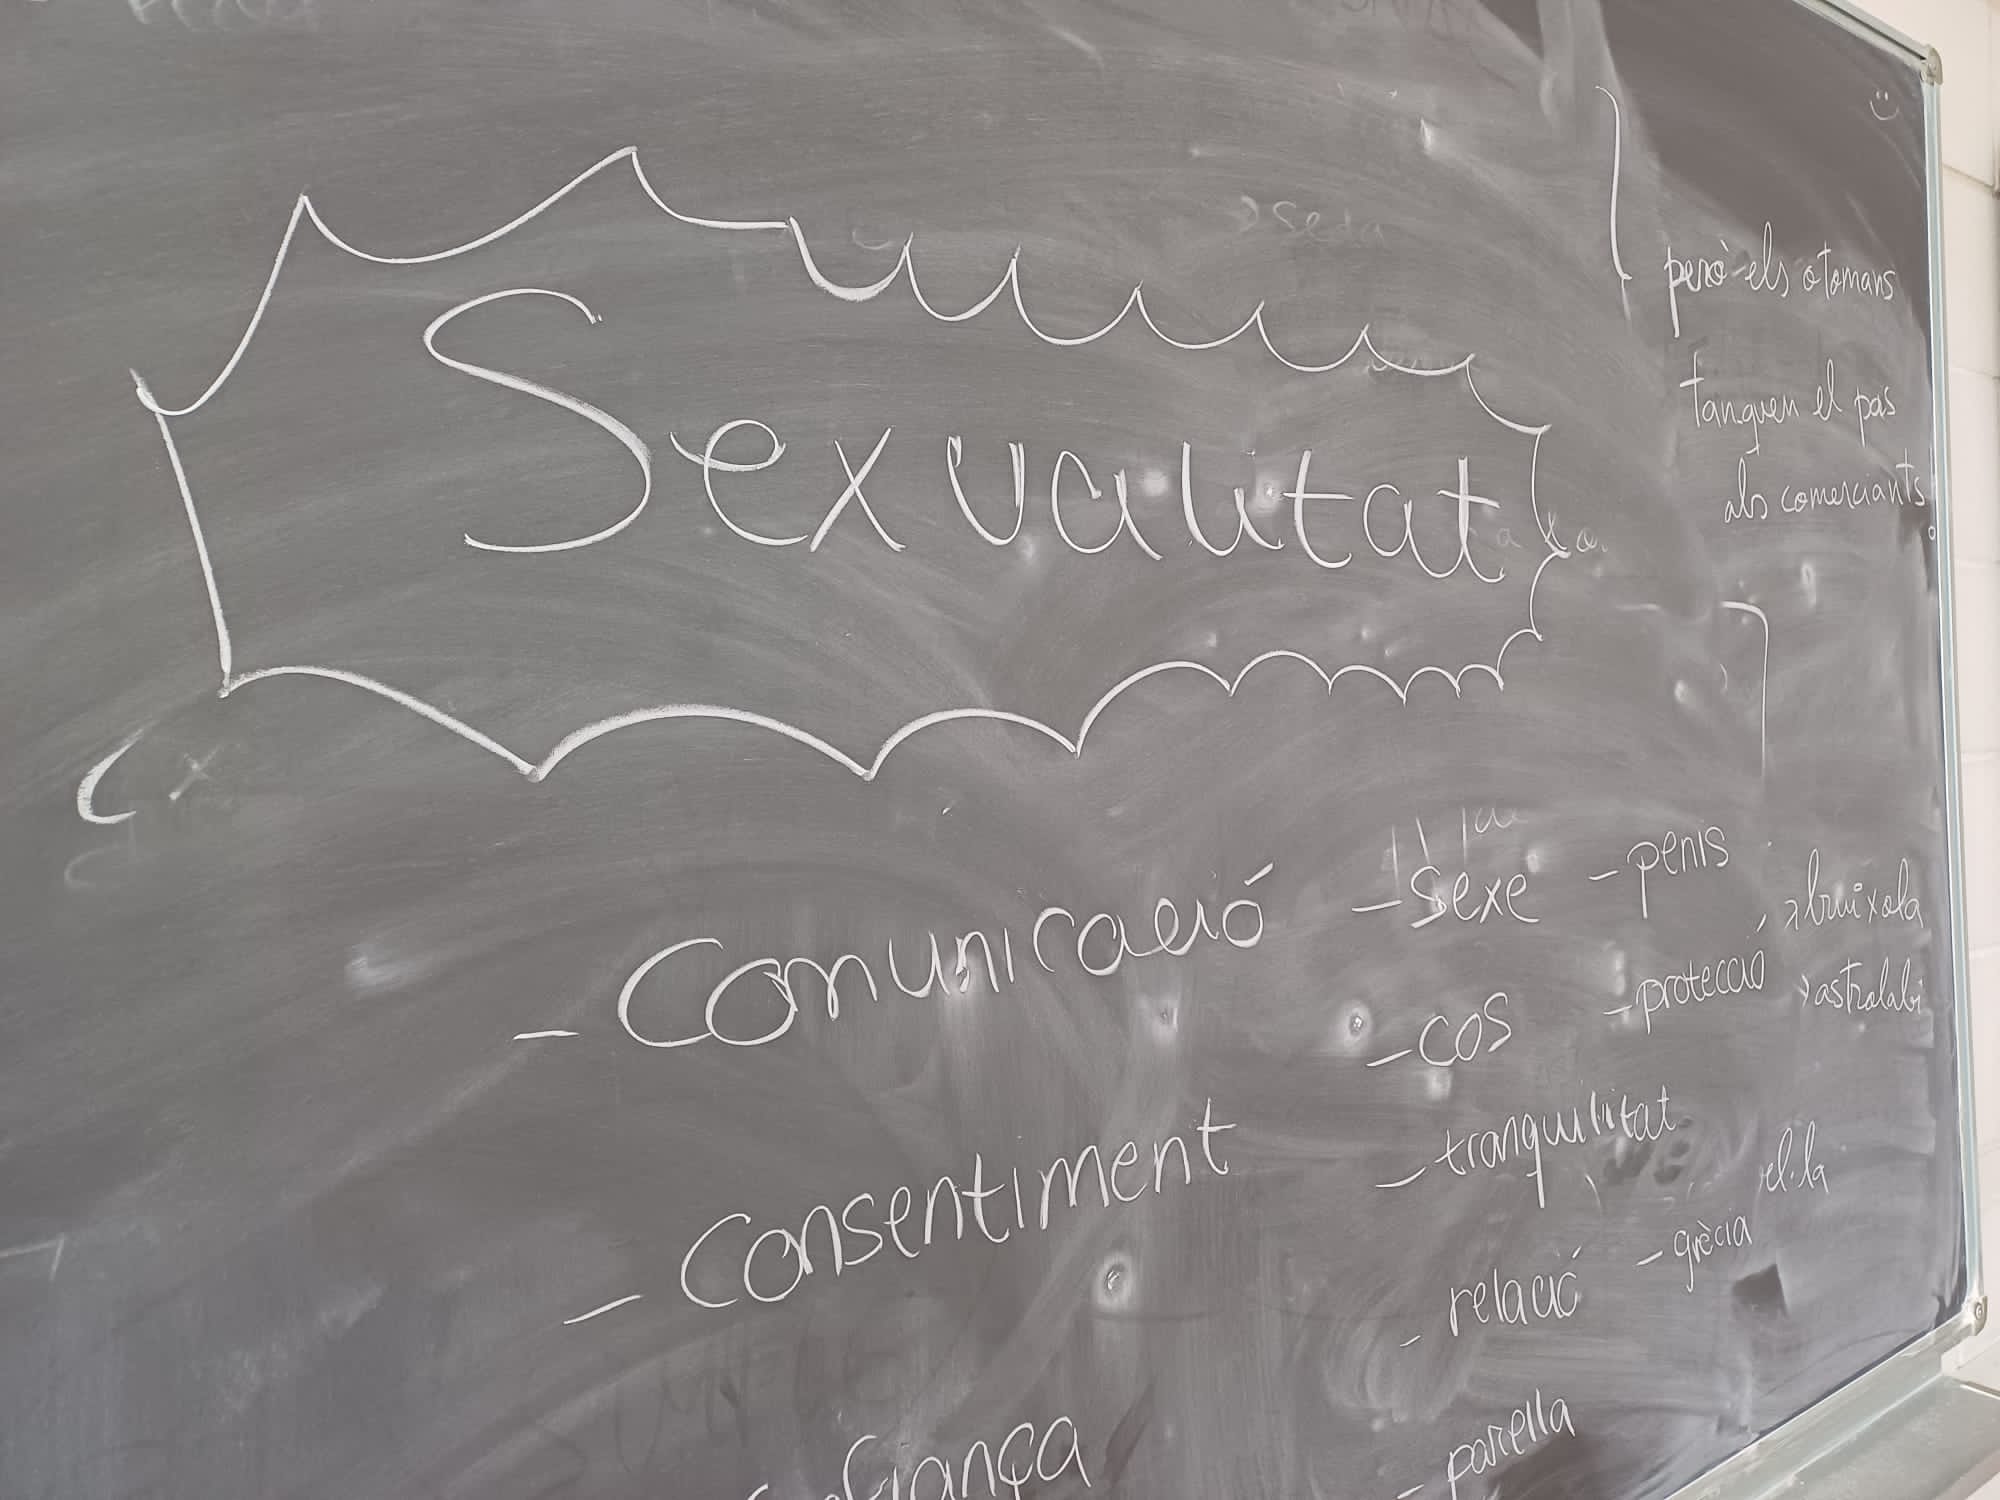 seda
però els otomans
tanquen el pas
als comerciants
Sexualitat
- Comunicació
- Consentiment
- sexe
- cos
- tranquilitat
- relació
- parella
- penis
- protecció
- grècia
bruixola
astrolabi